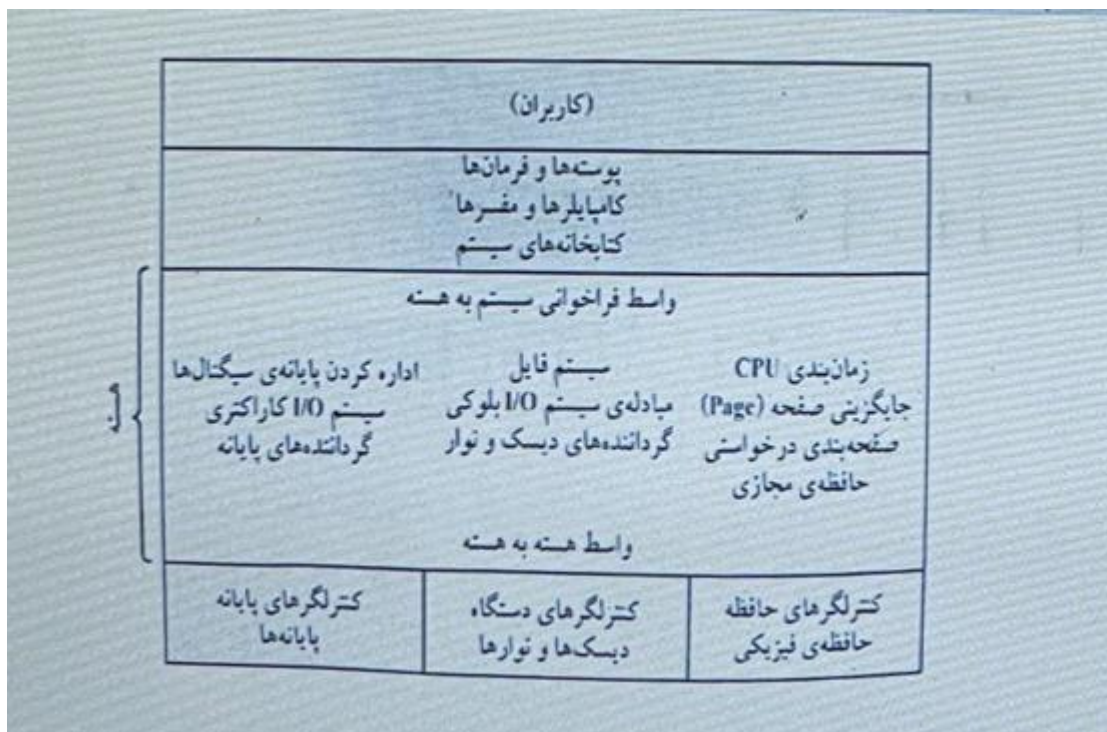 (کاربران)
پوسته‌ها و فرمان‌ها
کامپایلرها و مفسرها
کتابخانه‌های سیستم
واسط فراخوانی سیستم به هسته
زمان‌بندی CPU
جایگزینی صفحه (Page)
صفحه‌بندی درخواستی
حافظه‌ی مجازی
سیستم فایل
مبادله‌ی سیستم I/O بلوکی
گرداننده‌های دیسک و نوار
اداره کردن پایانه‌ی سیگنال‌ها
سیستم I/O کاراکتری
گرداننده‌های پایانه
واسط هسته به هسته
هسته
کنترلگرهای حافظه
حافظه‌ی فیزیکی
کنترلگرهای دستگاه
دیسک‌ها و نوارها
کنترلگرهای پایانه
پایانه‌ها